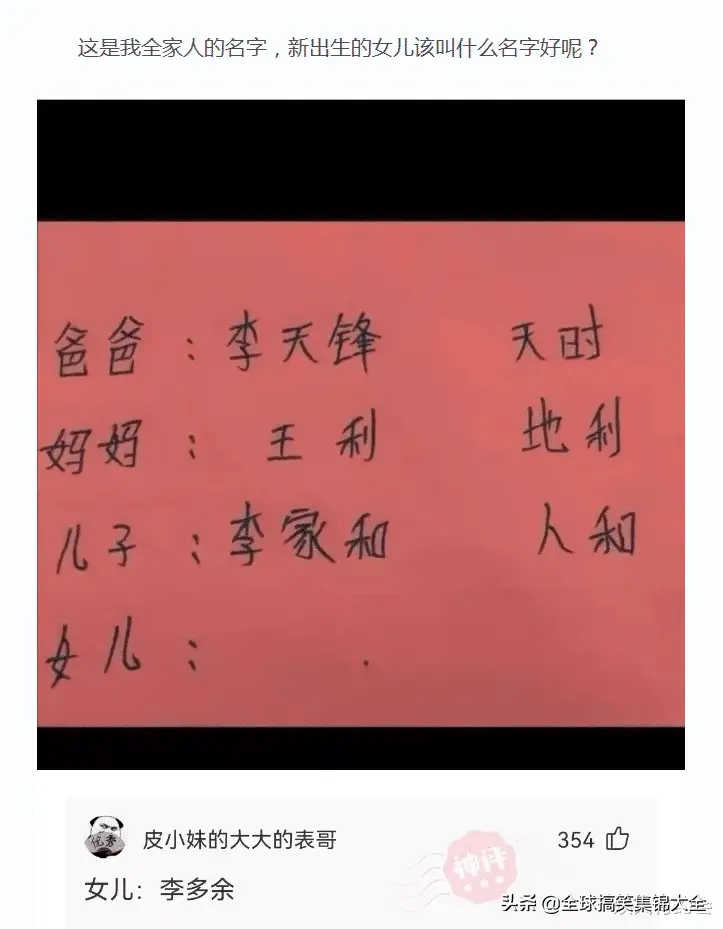 这是我全家人的名字，新出生的女儿该叫什么名字好呢？
爸爸：李天锋 天时
妈妈：王利 地利
儿子：李家和 人和
女儿：
皮小妹的大大的表哥 354
神评
女儿：李多余
头条 @全球搞笑集锦大全